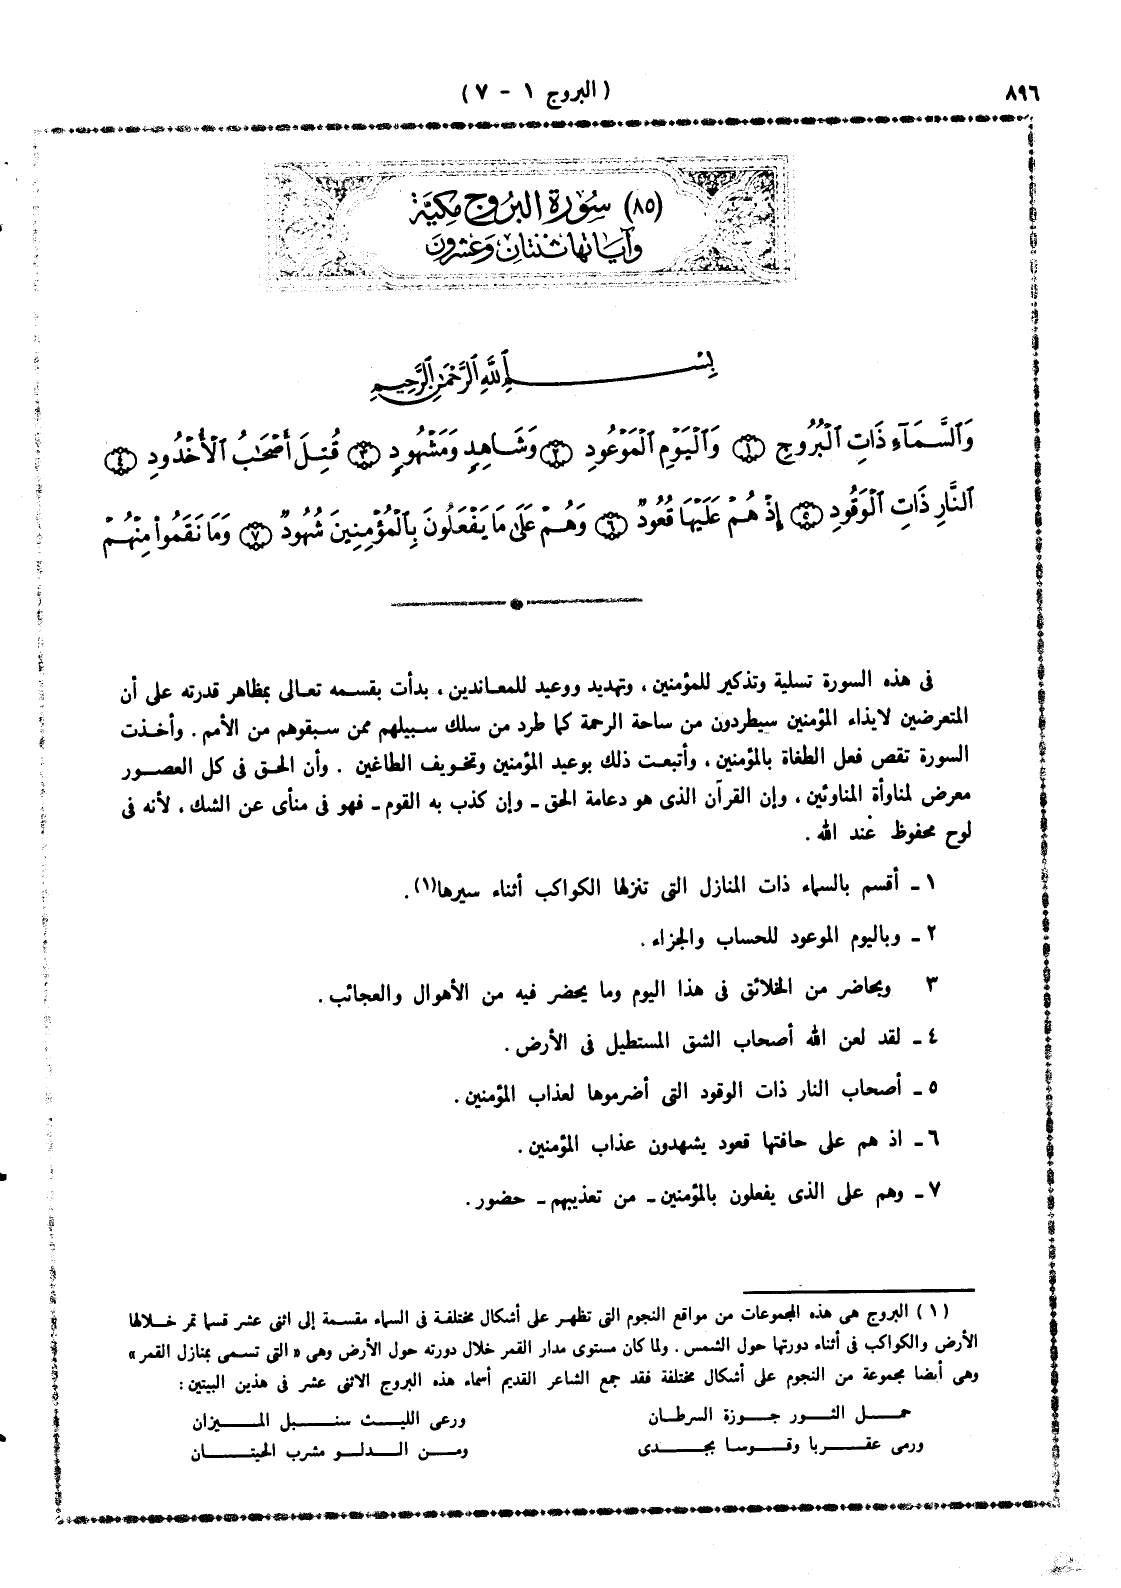 ٨٩٦
( البروج ١ - ٧ )
(٨٥) سُورَة البُرُوج مَكيَّة
وَآيَاتهَا ثنتَان وَعشرُونَ
بِسْمِ ٱللَّهِ ٱلرَّحْمَٰنِ ٱلرَّحِيمِ
وَٱلسَّمَآءِ ذَاتِ ٱلْبُرُوجِ ١ وَٱلْيَوْمِ ٱلْمَوْعُودِ ٢ وَشَاهِدٍ وَمَشْهُودٍ ٣ قُتِلَ أَصْحَٰبُ ٱلْأُخْدُودِ ٤
ٱلنَّارِ ذَاتِ ٱلْوَقُودِ ٥ إِذْ هُمْ عَلَيْهَا قُعُودٌ ٦ وَهُمْ عَلَىٰ مَا يَفْعَلُونَ بِٱلْمُؤْمِنِينَ شُهُودٌ ٧ وَمَا نَقَمُوا۟ مِنْهُمْ
فى هذه السورة تسلية وتذكير للمؤمنين ، وتهديد ووعيد للمعاندين ، بدأت بقسمه تعالى بمظاهر قدرته على أن
المتعرضين لايذاء المؤمنين سيطردون من ساحة الرحمة كما طرد من سلك سبيلهم ممن سبقوهم من الأمم . وأخذت
السورة تقص فعل الطغاة بالمؤمنين ، وأتبعت ذلك بوعيد المؤمنين وتخويف الطاغين . وأن الحق فى كل العصور
معرض لمناوأة المناوئين ، وإن القرآن الذى هو دعامة الحق ـ وإن كذب به القوم ـ فهو فى منأى عن الشك ، لأنه فى
لوح محفوظ عند الله .
١ ـ أقسم بالسماء ذات المنازل التى تنزلها الكواكب أثناء سيرها(١) .
٢ ـ وباليوم الموعود للحساب والجزاء .
٣ وبحاضر من الخلائق فى هذا اليوم وما يحضر فيه من الأهوال والعجائب .
٤ ـ لقد لعن الله أصحاب الشق المستطيل فى الأرض .
٥ ـ أصحاب النار ذات الوقود التى أضرموها لعذاب المؤمنين .
٦ ـ اذ هم على حافتها قعود يشهدون عذاب المؤمنين .
٧ ـ وهم على الذى يفعلون بالمؤمنين ـ من تعذيبهم ـ حضور .
( ١ ) البروج هى هذه المجموعات من مواقع النجوم التى تظهر على أشكال مختلفة فى السماء مقسمة إلى اثنى عشر قسما تمر خلالها
الأرض والكواكب فى أثناء دورتها حول الشمس . ولما كان مستوى مدار القمر خلال دورته حول الأرض وهى « التى تسمى بمنازل القمر »
وهى أيضا مجموعة من النجوم على أشكال مختلفة فقد جمع الشاعر القديم أسماء هذه البروج الاثنى عشر فى هذين البيتين :
حمل الثور جوزة السرطان ورعى الليث سنبل الميزان
ورمى عقربا وقوسا بجدى ومن الدلو مشرب الحيتان